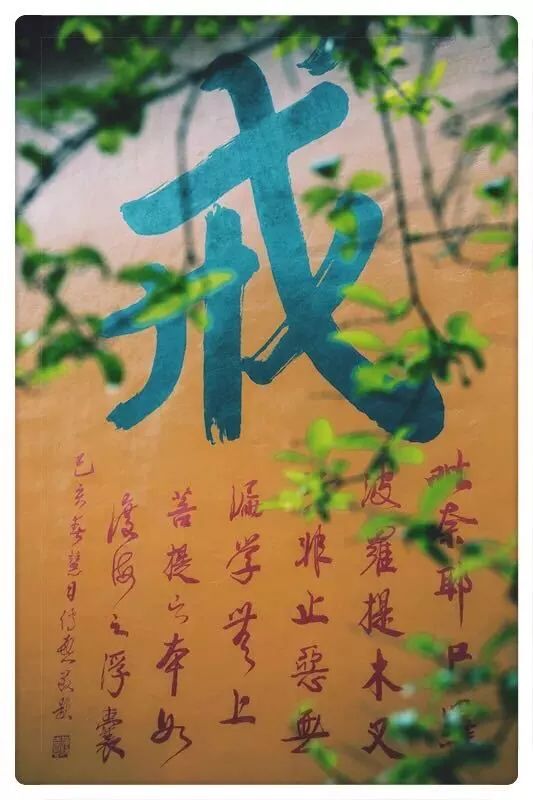 戒
毗奈耶尸羅
波羅提木叉
非止惡無
漏学無上
菩提之本如
渡海之浮囊
己亥春慧日傳敬題